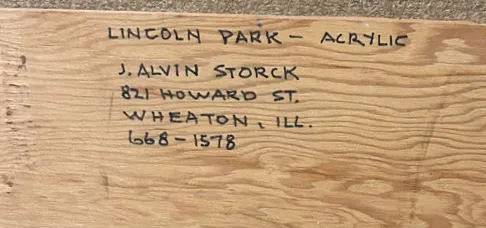 LINCOLN PARK - ACRYLIC
J. ALVIN STORCK
821 HOWARD ST.
WHEATON, ILL.
668-1578